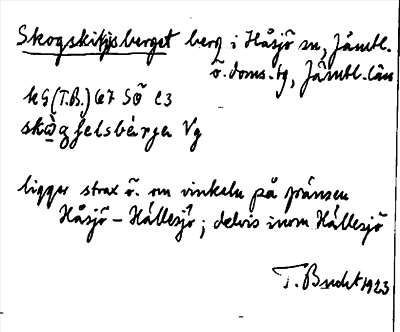 Skogskitjsberget berg i Håsjö sn, Jämtl.
ö. doms. tg, Jämtl. län
kG (T.B.) 67 SÖ e3
ligger strax ö. om vinkeln på gränsen
Håsjö – Hällesjö; delvis inom Hällesjö
T. Bucht 1923